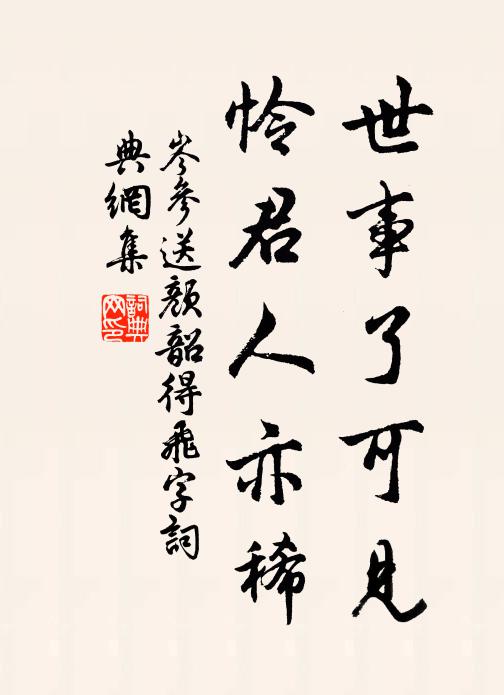 世事了可見
怜君人亦稀
岑參送顏韶得飛字詞
典網集
詞典
网印